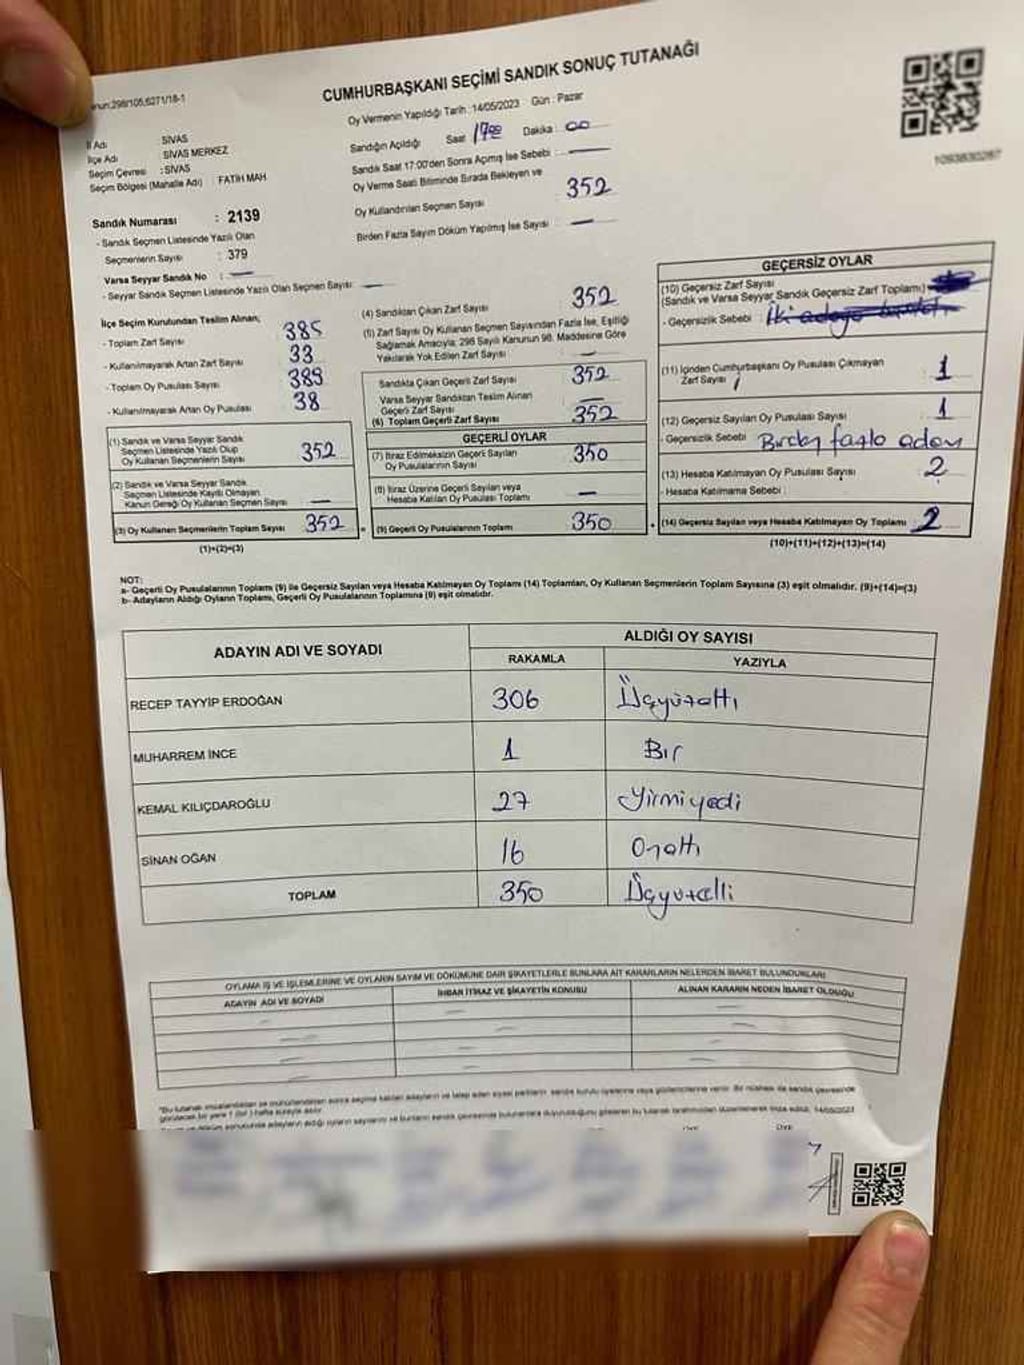 CUMHURBAŞKANI SEÇİMİ SANDIK SONUÇ TUTANAĞI
Oy Vermenin Yapıldığı Tarih :14/05/2023 Gün : Pazar
Sandığın Açıldığı Saat 17:00 Dakika : 00
Sandık Saat 17:00'den Sonra Açmış İse Sebebi : —
Oy Verme Saati Bitiminde Sırada Bekleyen ve
Oy Kullandırılan Seçmen Sayısı 352
Birden Fazla Sayım Döküm Yapılmış İse Sayısı : —
298/105,6271/18-1
İl Adı : SİVAS
İlçe Adı SİVAS MERKEZ
Seçim Çevresi : SİVAS
Seçim Bölgesi (Mahalle Adı) : FATİH MAH
Sandık Numarası : 2139
- Sandık Seçmen Listesinde Yazılı Olan
Seçmenlerin Sayısı : 379
Varsa Seyyar Sandık No : —
- Seyyar Sandık Seçmen Listesinde Yazılı Olan Seçmen Sayısı : —
İlçe Seçim Kurulundan Teslim Alınan;
- Toplam Zarf Sayısı 385
- Kullanılmayarak Artan Zarf Sayısı 33
- Toplam Oy Pusulası Sayısı 389
- Kullanılmayarak Artan Oy Pusulası 38
(1) Sandık ve Varsa Seyyar Sandık
Seçmen Listesinde Yazılı Olup
Oy Kullanan Seçmenlerin Sayısı 352
(2) Sandık ve Varsa Seyyar Sandık
Seçmen Listesinde Kayıtlı Olmayan
Kanun Gereği Oy Kullanan Seçmen Sayısı —
(3) Oy Kullanan Seçmenlerin Toplam Sayısı 352
(1)+(2)=(3)
(4) Sandıktan Çıkan Zarf Sayısı 352
(5) Zarf Sayısı Oy Kullanan Seçmen Sayısından Fazla İse, Eşitliği
Sağlamak Amacıyla; 298 Sayılı Kanunun 98. Maddesine Göre
Yakılarak Yok Edilen Zarf Sayısı —
Sandıkta Çıkan Geçerli Zarf Sayısı 352
Varsa Seyyar Sandıktan Teslim Alınan
Geçerli Zarf Sayısı —
(6) Toplam Geçerli Zarf Sayısı 352
GEÇERLİ OYLAR
(7) İtiraz Edilmeksizin Geçerli Sayılan
Oy Pusulalarının Sayısı 350
(8) İtiraz Üzerine Geçerli Sayılan veya
Hesaba Katılan Oy Pusulası Toplamı —
(9) Geçerli Oy Pusulalarının Toplamı 350
1093830287
GEÇERSİZ OYLAR
(10) Geçersiz Zarf Sayısı
(Sandık ve Varsa Seyyar Sandık Geçersiz Zarf Toplamı)
- Geçersizlik Sebebi : İki adaya
(11) İçinden Cumhurbaşkanı Oy Pusulası Çıkmayan
Zarf Sayısı 1
(12) Geçersiz Sayılan Oy Pusulası Sayısı 1
- Geçersizlik Sebebi Birden fazla aday
(13) Hesaba Katılmayan Oy Pusulası Sayısı 2
- Hesaba Katılmama Sebebi :
(14) Geçersiz Sayılan veya Hesaba Katılmayan Oy Toplamı 2
(10)+(11)+(12)+(13)=(14)
NOT:
a- Geçerli Oy Pusulalarının Toplamı (9) ile Geçersiz Sayılan veya Hesaba Katılmayan Oy Toplamı (14) Toplamları, Oy Kullanan Seçmenlerin Toplam Sayısına (3) eşit olmalıdır. (9)+(14)=(3)
b- Adayların Aldığı Oyların Toplamı, Geçerli Oy Pusulalarının Toplamına (9) eşit olmalıdır.
ADAYIN ADI VE SOYADI ALDIĞI OY SAYISI
RAKAMLA YAZIYLA
RECEP TAYYİP ERDOĞAN 306 Üçyüzaltı
MUHARREM İNCE 1 Bir
KEMAL KILIÇDAROĞLU 27 Yirmiyedi
SİNAN OĞAN 16 Onaltı
TOPLAM 350 Üçyüzelli
OYLAMA İŞ VE İŞLEMLERİNE VE OYLARIN SAYIM VE DÖKÜMÜNE DAİR ŞİKAYETLERLE BUNLARA AİT KARARLARIN NELERDEN İBARET BULUNDUKLARI
ADAYIN ADI VE SOYADI İHBAR İTİRAZ VE ŞİKAYETİN KONUSU ALINAN KARARIN NEDEN İBARET OLDUĞU